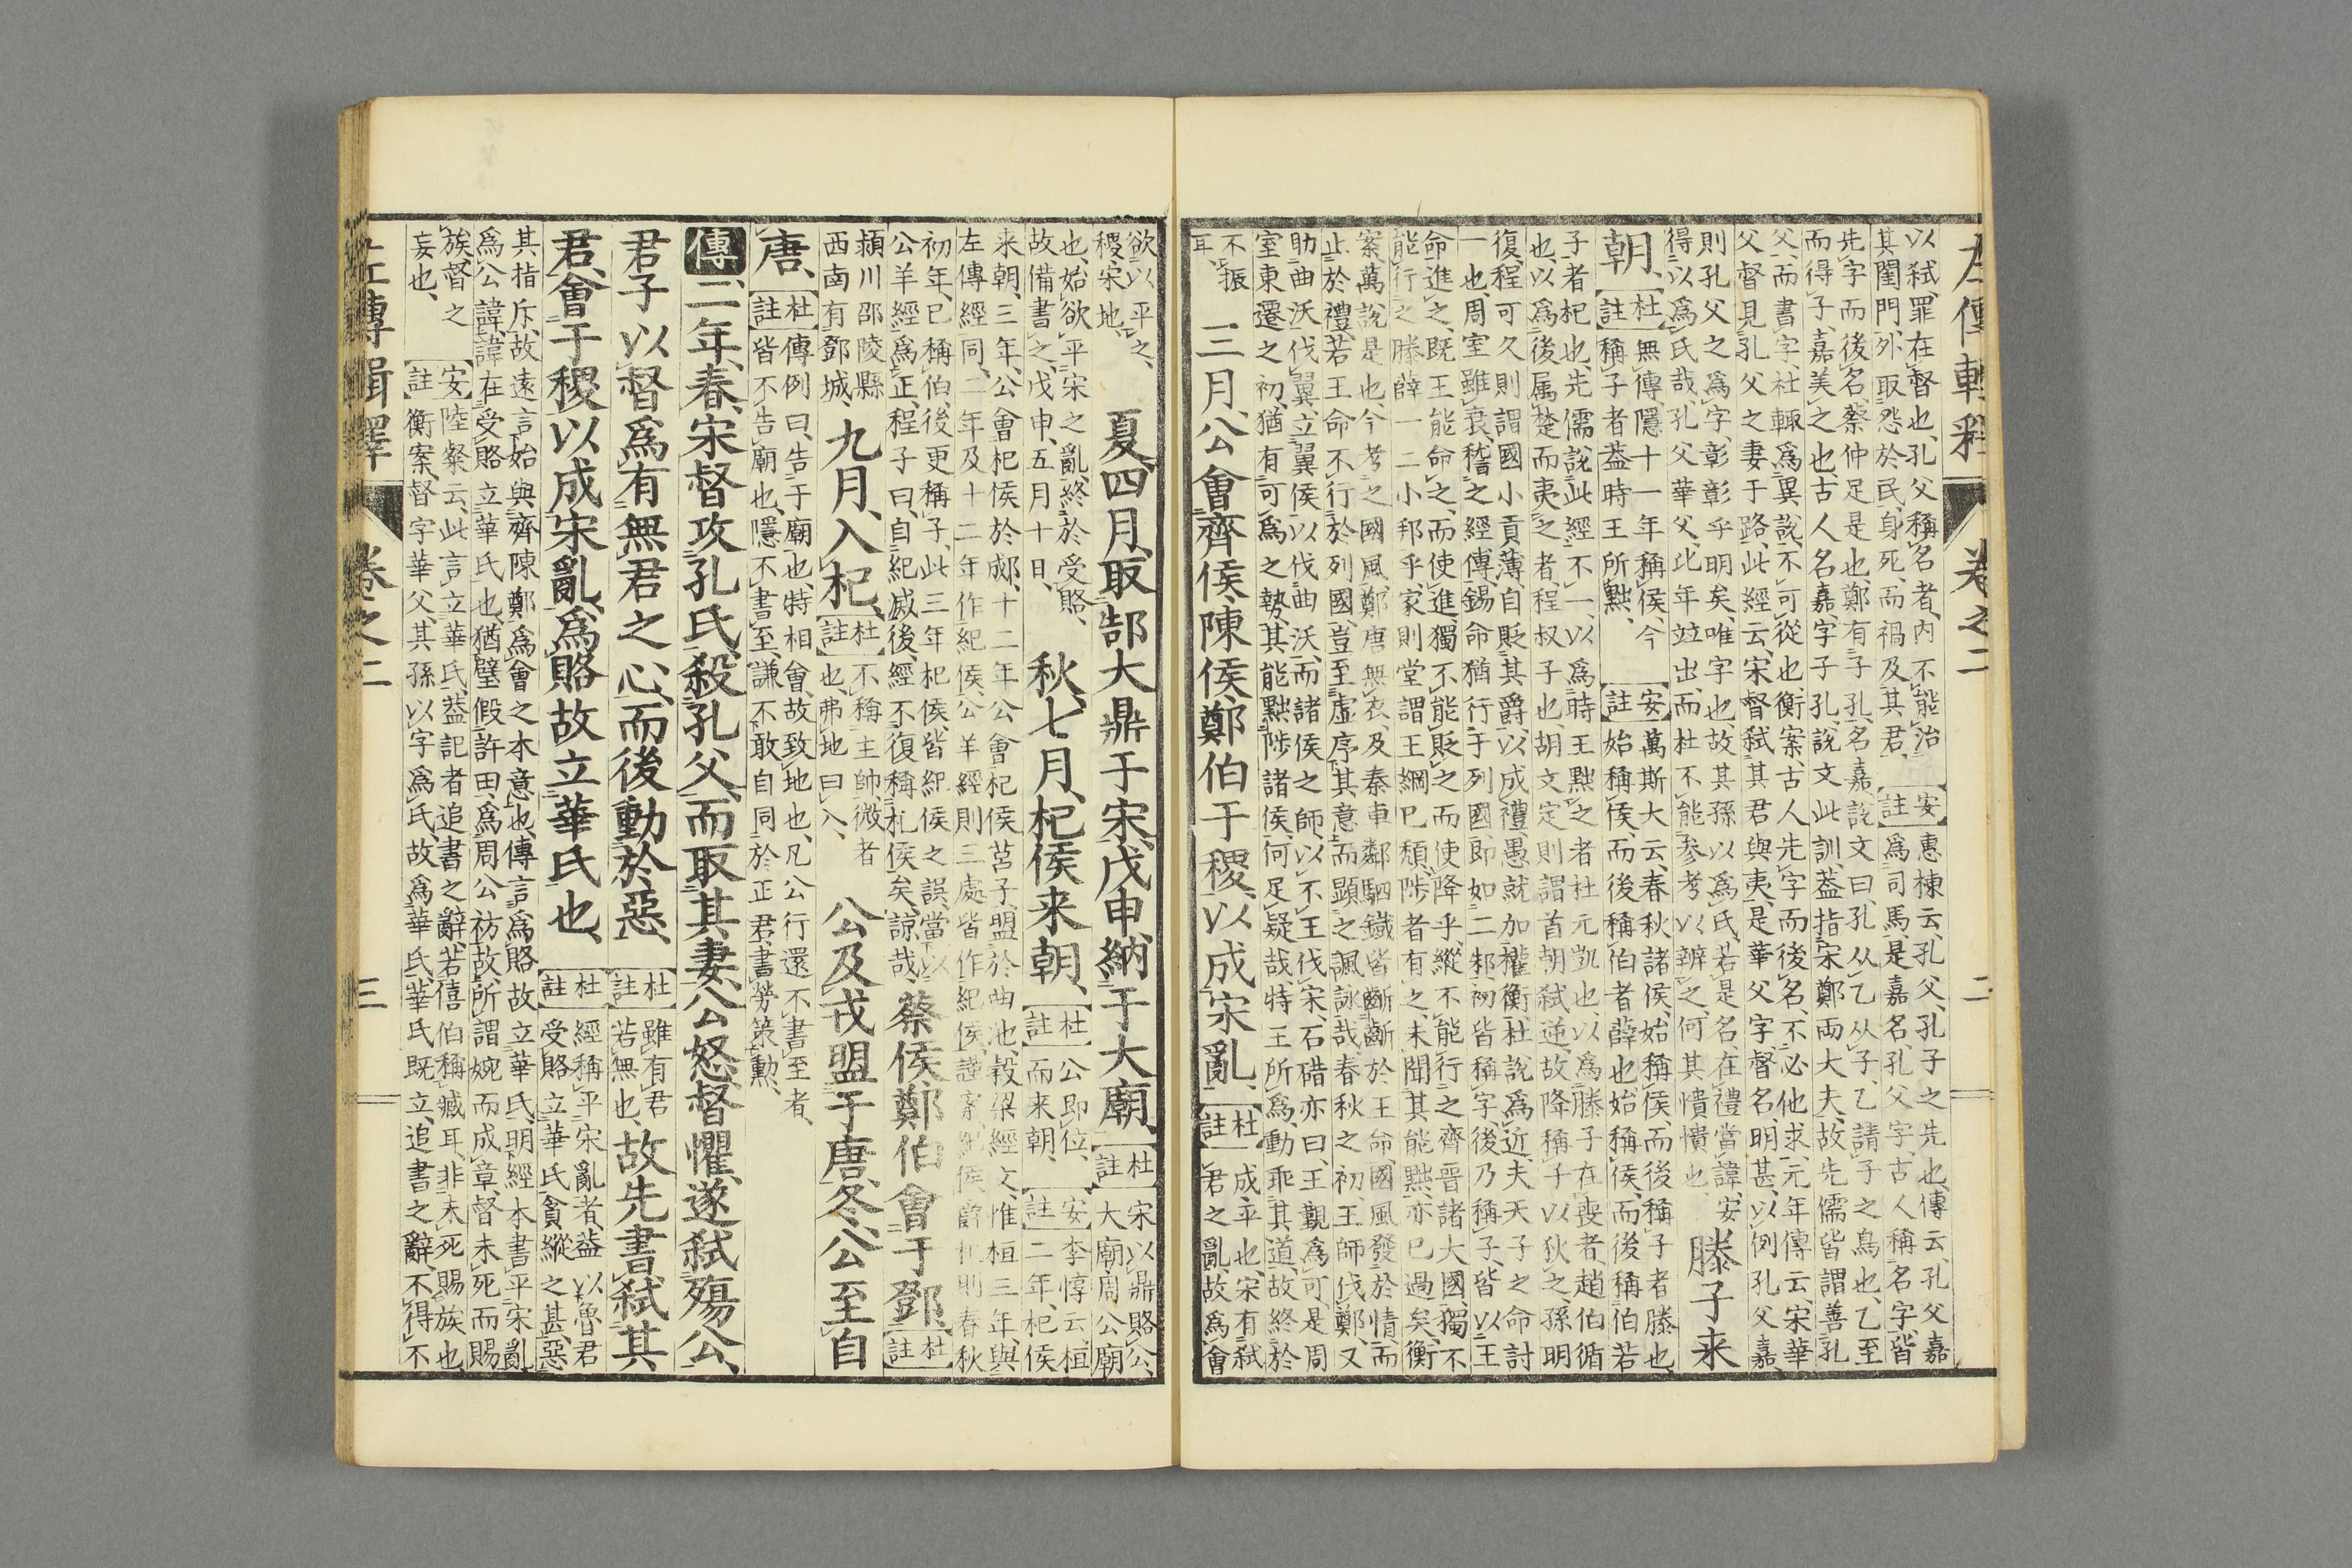 左傳輯釋　卷之二　二
以弑罪在督也、孔父稱名者、內不能治
其閨門、外取怨於民、身死、而禍及其君、
安註
惠棟云、孔父、孔子之先也、傳云、孔父嘉
爲司馬、是嘉名、孔父字、古人稱名字皆
先字而後名、蔡仲足是也、鄭有子孔、名嘉、說文曰、孔从乙从子、乙請子之鳥也、乙至
而得子、嘉美之也、古人名嘉字子孔、說文此訓、蓋指宋鄭兩大夫、故先儒皆謂善孔
父、而書字、杜輒爲異說、不可從也、衡案、古人先字而後名、不必他求、元年傳云、宋華
父督見孔父之妻于路、此經云、宋督弑其君與夷、是華父字、督名明甚、以例孔父嘉、
則孔父之爲字、彰彰乎明矣、唯字也、故其孫以爲氏、若是名、在禮當諱、安
得以爲氏哉、孔父華父、比年竝出、而杜不能參考以辨之、何其憒憒也
滕子来
朝、
杜註
無傳、隱十一年稱侯、今
稱子者、蓋時王所黜、
安註
萬斯大云、春秋諸侯、始稱侯、而後稱子者滕也、
始稱侯、而後稱伯者薛也、始稱侯、而後稱伯若
子者杞也、先儒說此經不一、以爲時王黜之者杜元凱也、以爲滕子在喪者、趙伯循
也、以爲後属楚而夷之者程叔子也、胡文定則謂首朝弑逆、故降稱子、以狄之、孫明
復、程可久則謂國小貢薄、自貶其爵、以成禮、愚就加權衡、杜說爲近、夫天子之命討
一也、周室雖衰、稽之經傳、錫命猶行于列國、即如二邾初皆稱字、後乃稱子、皆以王
命進之、既王能命之、而使進、獨不能貶之而使降乎、縱不能行之齊晉諸大國、獨不
能行之滕薛一二小邦乎、家則堂謂王綱已頹、陟者有之、未聞其能黜、亦已過矣、衡
案、萬說是也、今考之國風、鄭唐無衣、及秦車鄰駟鐵皆斷斷於王命、國風發於情而
止於禮、若王命不行於列國、豈至虛序其意而顯之諷詠哉、春秋之初、王師伐鄭、又
助曲沃伐翼、立翼侯以伐曲沃、而諸侯之師、以不王伐宋、石碏亦曰、王覲爲可、是周
室東遷之初、猶有可爲之勢、其能黜陟諸侯、何足疑哉、特王所爲、動乖其道、故終於
不振
耳、
三月、公會齊侯陳侯鄭伯于稷、以成宋亂、
杜註
成、平也、宋有弑
君之亂、故爲會
欲以平之、
稷、宋地、
夏四月、取郜大鼎于宋、戊申、納于大廟、
杜註
宋以鼎賂公、
大廟、周公廟
也、始欲平宋之亂、終於受賂、
故備書之、戊申、五月十日、
秋、七月、杞侯来朝、
杜註
公即位、
而来朝、
安註
李惇云、桓
二年、杞侯
来朝、三年、公會杞侯於郕、十二年公會杞侯莒子、盟於曲池、穀梁經文、惟桓三年、與
左傳經同、二年及十二年作紀侯、公羊經則三處皆作紀侯、
初年、已稱伯、後更稱子、此三年杞侯、皆紀侯之誤、當以
公羊經爲正、程子曰、自紀滅後、經不復稱杞侯矣、諒哉、
蔡侯鄭伯會于鄧、
杜註
潁川邵陵縣
西南有鄧城、
九月、入杞、
杜註
不稱主帥、微者
也、弗地曰入、
公及戎盟于唐、冬、公至自
唐、
杜註
傳例曰、告于廟也、特相會、故致地也、凡公行還不書至者、
皆不告廟也、隱不書至、謙不敢自同於正君、書勞策勳、
傳二年、春、宋督攻孔氏、殺孔父、而取其妻、公怒、督懼、遂弑殤公、
君子以督爲有無君之心、而後動於惡、
杜註
雖有君、
若無也、
故先書弑其
君、會于稷、以成宋亂、爲賂故、立華氏也、
杜註
經稱平宋亂者、蓋以魯君
受賂立華氏、貪縱之甚、惡
其指斥、故遠言始與齊陳鄭爲會之本意也、傳言爲賂故立華氏、明經本書平宋亂
爲公諱、諱在受賂立華氏也、猶璧假許田、爲周公祊故、所謂婉而成章、督未死而賜
族、督之
妄也、
安註
陸粲云、此言立華氏、蓋記者追書之辭、若僖伯稱臧耳、非未死賜族也、
衡案、督字華父、其孫以字爲氏、故爲華氏、華氏既立、追書之辭、不得不
左傳輯釋　卷之二　三